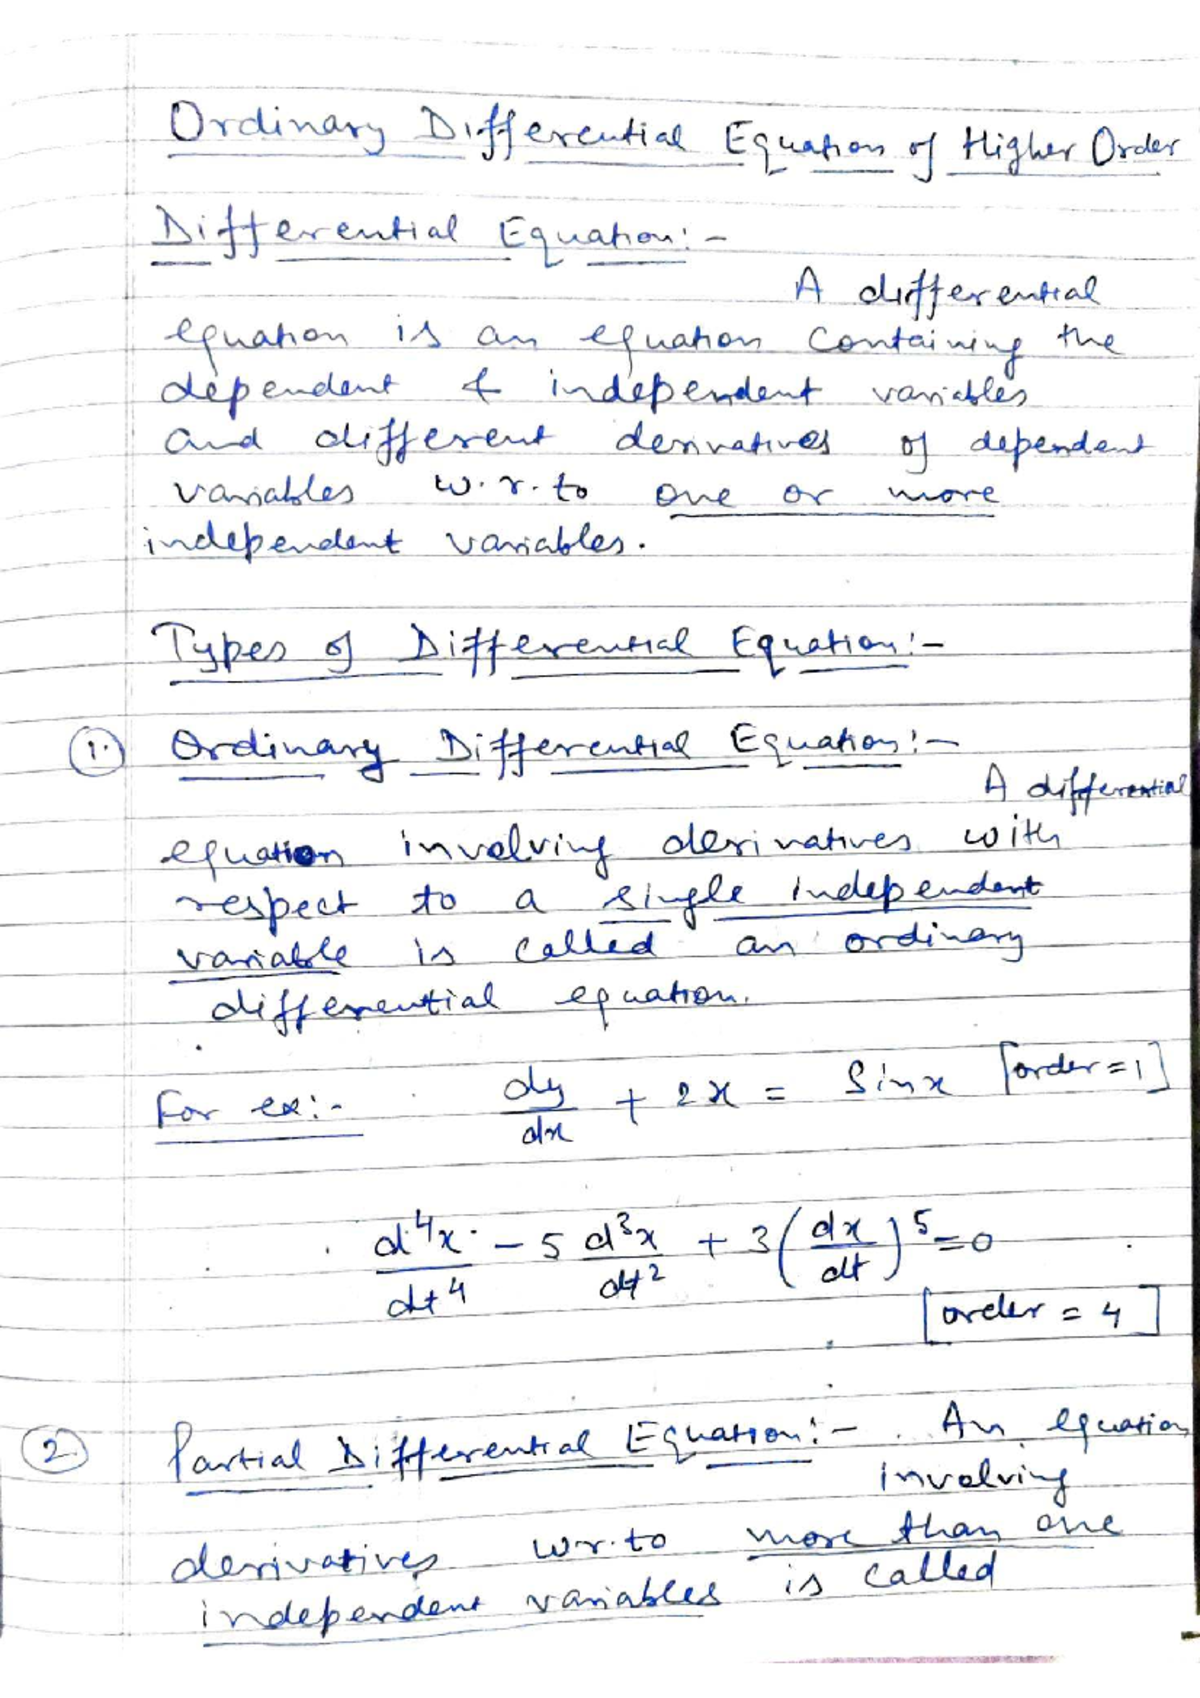 Ordinary Differential Equation of Higher Order
Differential Equation:-
A differential
equation is an equation containing the
dependent & independent variables
and different derivatives of dependent
variables w.r.to one or more
independent variables.
Types of Differential Equation:-
1. Ordinary Differential Equation:-
A differential
equation involving derivatives with
respect to a single independent
variable is called an ordinary
differential equation.
For ex:- dy/dx + 2x = Sinx [order=1]
d⁴x/dt⁴ - 5 d³x/dt² + 3(dx/dt)⁵=0
[order = 4]
2. Partial Differential Equation:- An equation
involving
derivatives w.r.to more than one
independent variables is called